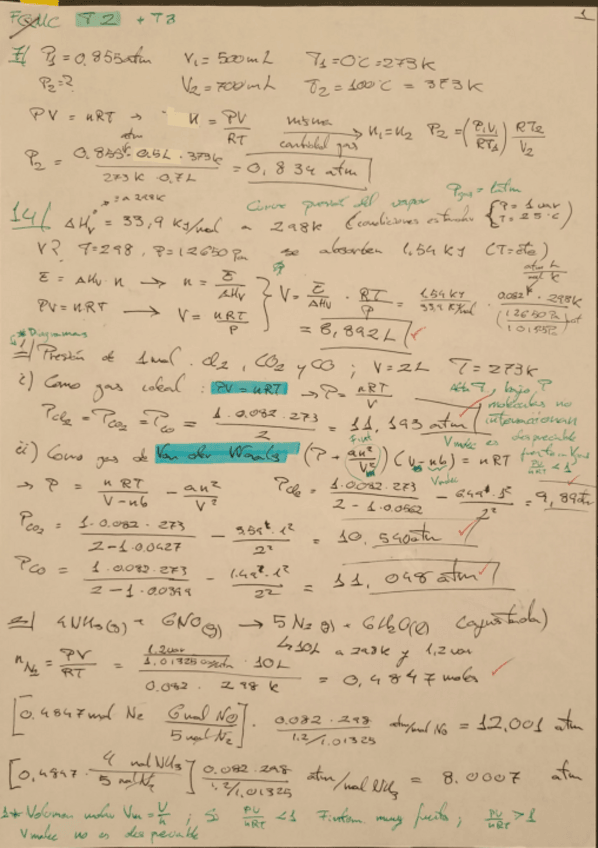 FQMC T2 + T3 1
7/ P₁ = 0,855atm V₁ = 500mL T₁ = 0°C = 273K
P₂ = ? V₂ = 700mL T₂ = 100°C = 373K
PV = nRT → n = PV/RT misma cantidad gas → n₁ = n₂ P₂ = (P₁V₁/RT₁) RT₂/V₂
P₂ = 0,855 atm · 0,5L · 373K / 273K · 0,7L = 0,834 atm
→ = a 298K Pgas = 1atm
14/ ΔHv = 33,9 KJ/mol a 298K (condiciones estandar {P = 1 bar T = 25°C)
V? T=298, P=12650 Pa se absorben 1,54 KJ (T=cte)
E = ΔHv · n → n = E/ΔHv
PV = nRT → V = nRT/P
V = E/ΔHv · RT/P = 1,54 KJ / 33,9 KJ/mol · 0.082 atm L/mol K · 298K / (12650Pa / 101325Pa) = 8,892L
* Diagramas
1/ Presión de 1 mol Cl₂, CO₂ y CO; V = 2L T = 273K
i) Como gas ideal: PV = nRT → P = nRT/V
Alta T, bajo P moléculas no interaccionan
Vmolec es despreciable frente a Vgas
PV/nRT < 1
PCl₂ = PCO₂ = PCO = 1 · 0.082 · 273 / 2 = 11,193 atm
ii) Como gas de Van der Waals (P + an²/V²)(V - nb) = nRT
Fint Vmolec
→ P = nRT/V-nb - an²/V² PCl₂ = 1 · 0.082 · 273 / 2 - 1 · 0.0562 - 6.49 · 1² / 2² = 9,89atm
PCO₂ = 1 · 0.082 · 273 / 2 - 1 · 0.0427 - 3.59 · 1² / 2² = 10,540atm
PCO = 1 · 0.082 · 273 / 2 - 1 · 0.0399 - 1.49 · 1² / 2² = 11,048 atm
2/ 4NH₃(g) + 6NO(g) → 5N₂(g) + 6H₂O(l) (ajustada)
↳ 10L a 298K y 1,2 bar
nN₂ = PV/RT = 1.2bar / 1,01325 bar/atm · 10L / 0.082 · 298K = 0,4847 moles
[0.4847 mol N₂ 6 mol NO / 5 mol N₂] · 0.082 · 298 / 1.2/1,01325 atm/mol NO = 12,001 atm
[0,4847 · 4 mol NH₃ / 5 mol N₂] 0.082 · 298 / 1.2/1,01325 atm/mol NH₃ = 8.0007 atm
1* Volumen molar Vm = V/n; Si PV/nRT < 1 Fint muy fuerte; PV/nRT > 1
Vmolec no es despreciable